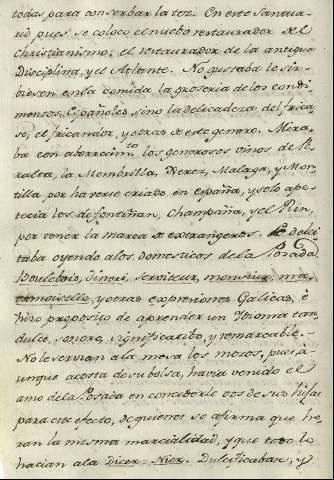 todas para conserbar la tez. En este Santua-
rio pues se colocó el nuebo restaurador del
Christianismo, el restaurador de la antigua
Disciplina, y el Atlante. No gustaba le sir-
biesen en la comida la groseria de los condi-
mentos Españoles, sino la delicadeza del frica-
sé, el fricandóx, y otras de este genero. Mira-
ba con aborrecim.to los generosos vinos de Pe-
ralta, la Membrilla, Xerez, Malaga, y Mon-
tilla por haverse criado en España, y solo ape-
tecia los de fontiñan, Champaña, y el Rin,
por tener la marca de extrangeros. Se delei-
taba oyendo a los domesticos de la Posada
Boulebois, Dineri, Serviteur, monsieur, ma-
demoiselle, y otras expresiones Galicas, é
hizo proposito de aprender un Idioma tan
dulce, sonoro, significatibo, y remarcable.
No le servian a la mesa los mozos, pues, a-
unque a costa de su bolsa, havia venido el
amo de la Posada en concederle dos de sus hijas
para este efecto, de quienes se afirma que he-
ran la misma marcialidad, y que todo lo
hacian a la Dicer-Nier. Dulcificabase, y